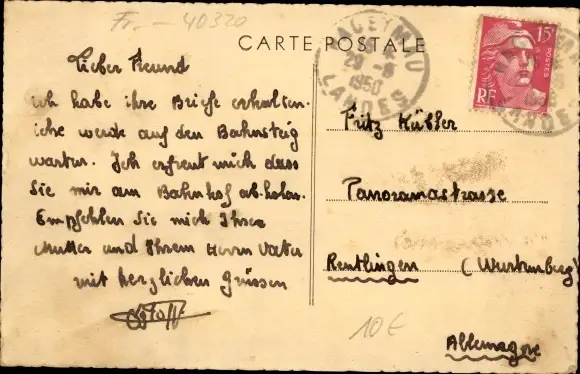 Fr. - 40320
CARTE POSTALE
LABEYRIAU
29-8
1950
LANDES
15F
POSTES
RF
Lieber Freund
ich habe ihre Briefe erhalten.
iche werde auf den Bahnsteig
warten. Ich erfreut mich dass
Sie mir am Bahnhof ab.holen.
Empfehlen Sie mich Ihrer
Mutter und Ihrem Herrn Vater
mit herzlichen grüssen
Fritz Kübler
Panoramastrasse
Reutlingen (Wurtemberg)
10€
Allemagne